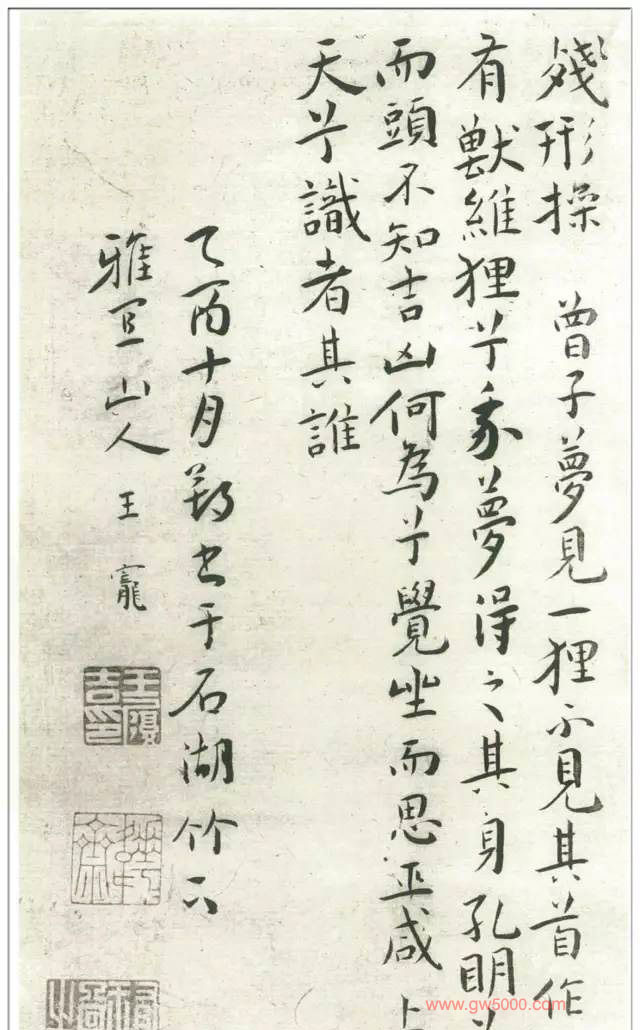 殘形操 曾子夢見一狸不見其首作
有獸維狸兮我夢得之其身孔明兮
而頭不知吉凶何為兮覺坐而思巫咸上
天兮識者其誰
乙酉十月朔書于石湖竹下
雅宜山人王寵
王履吉印
www.gw5000.com